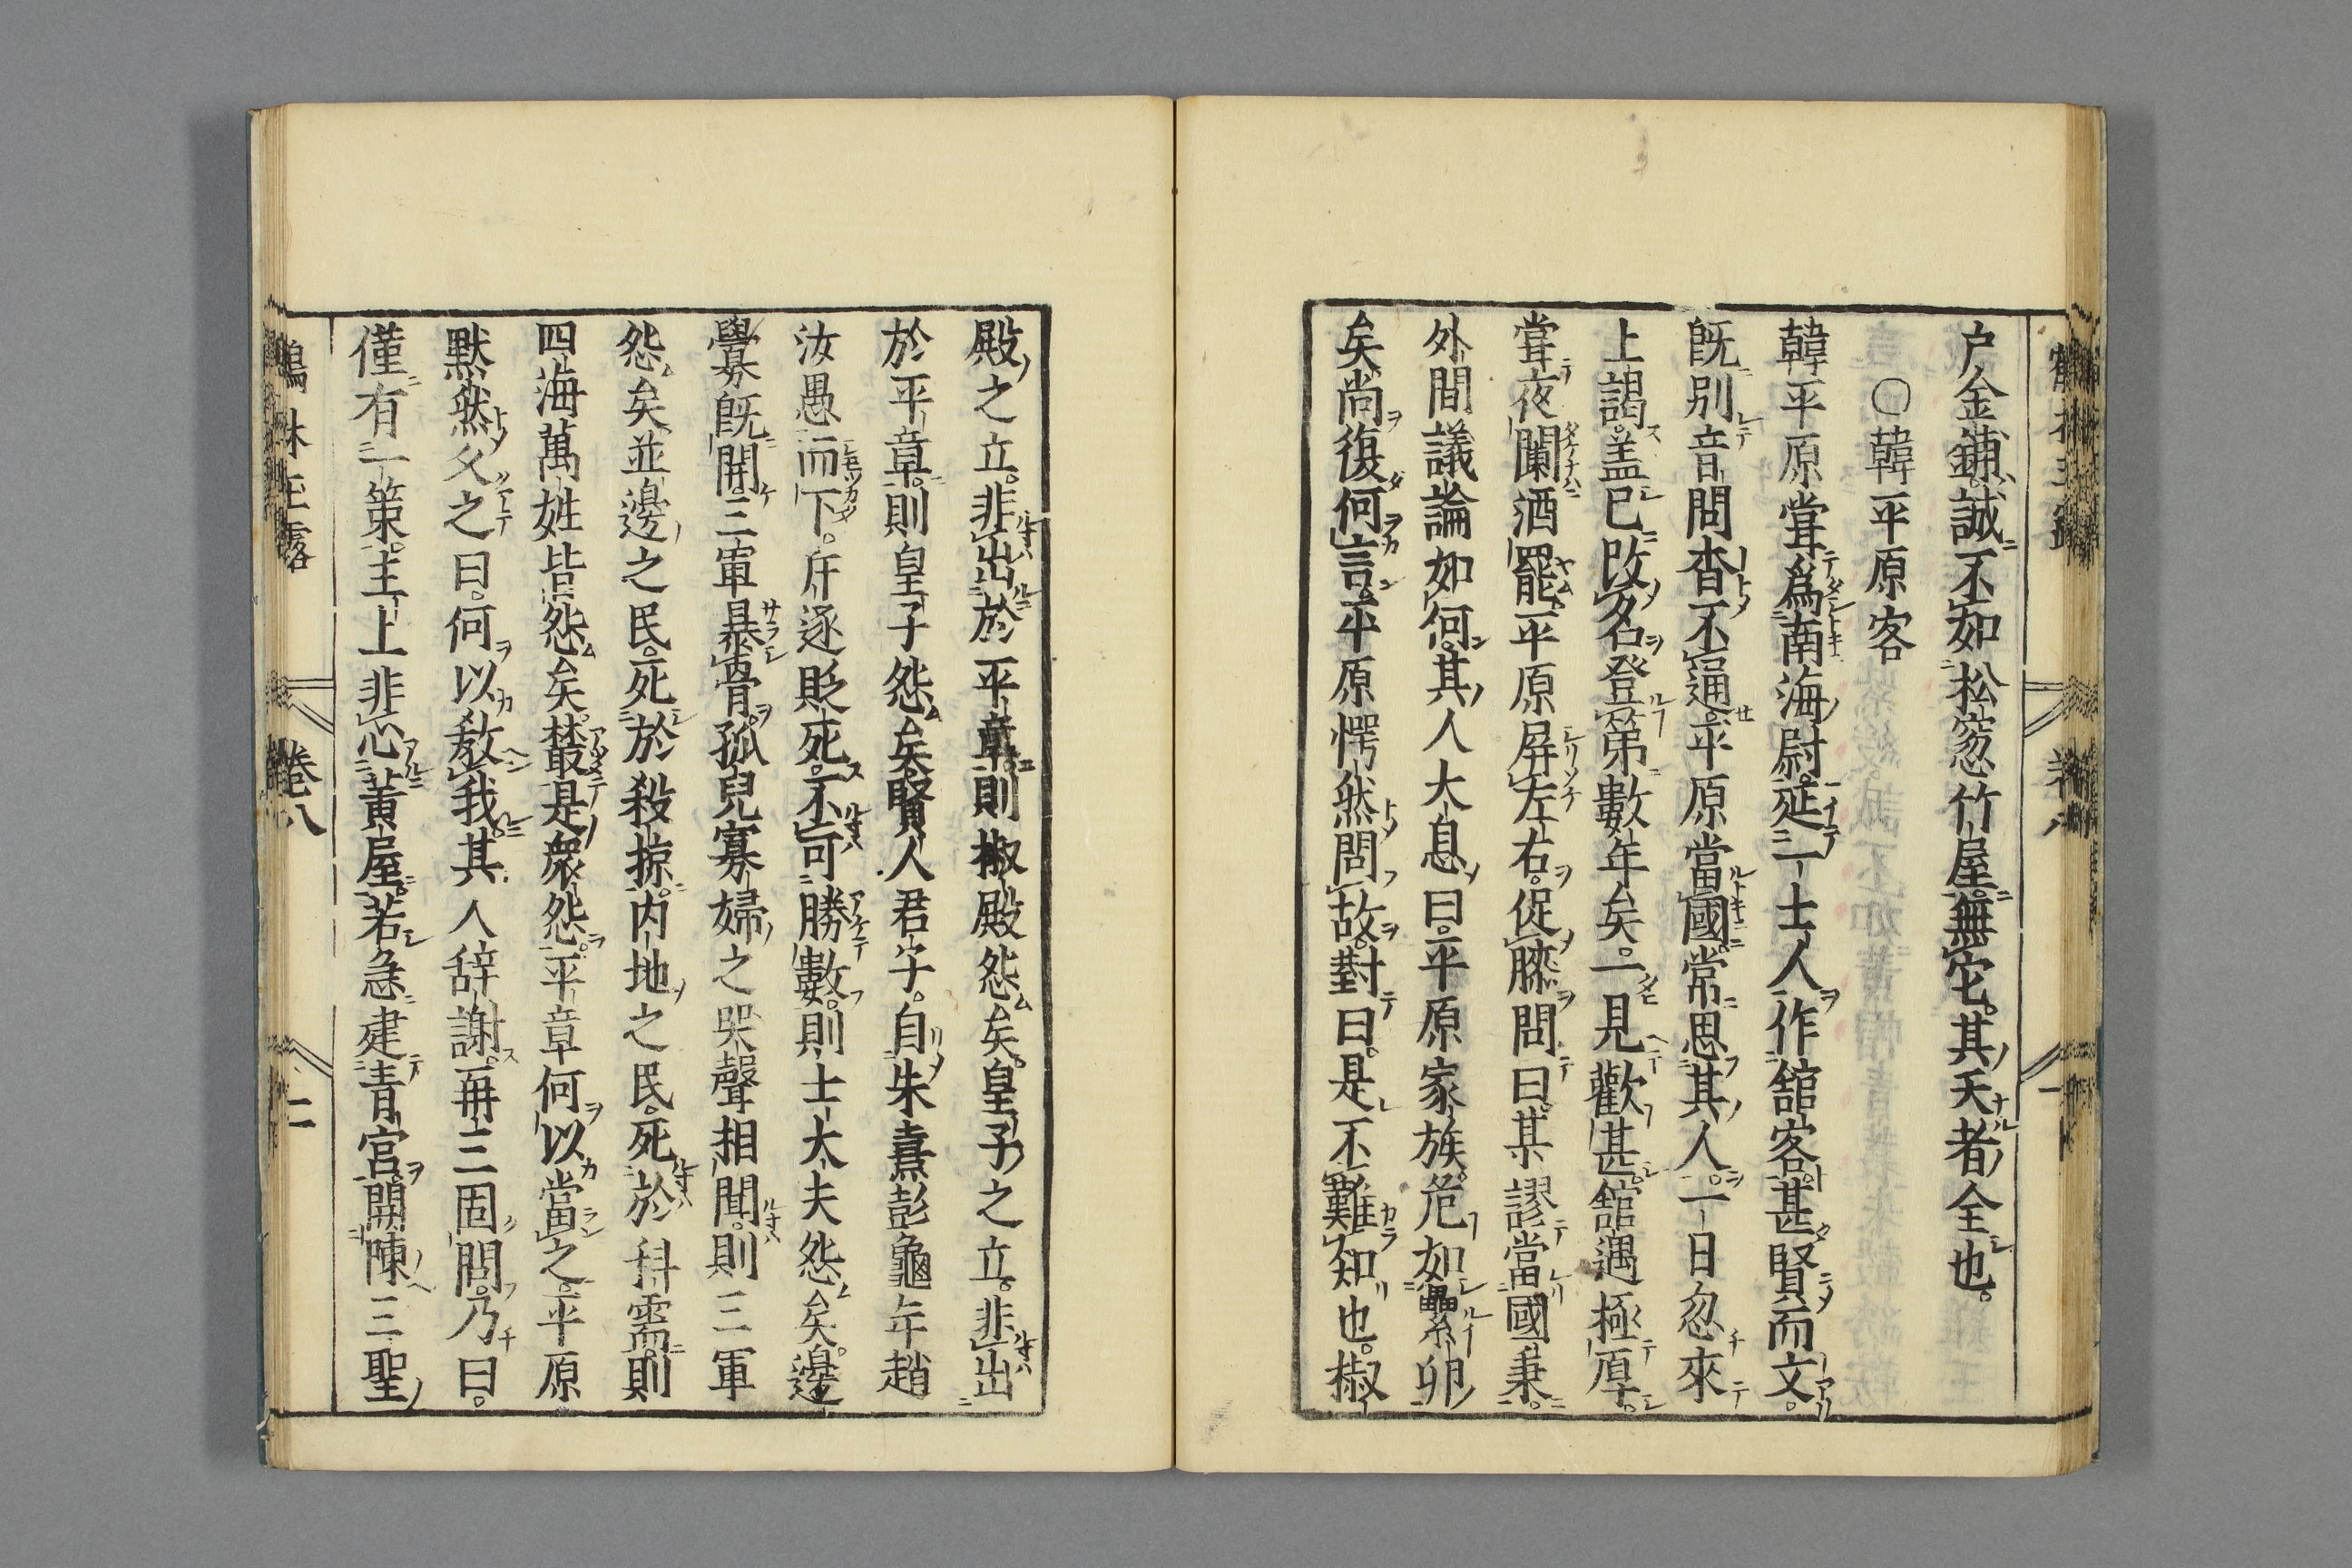 戶金鋪誠不如松窓竹屋無它其天者全也
○韓平原客
韓平原嘗爲南海尉延一士人作舘客甚賢而文
旣別音問杳不通平原當國常思其人一日忽來
上謁盖已改名登第數年矣一見歡甚舘遇極厚
嘗夜闌酒罷平原屏左右促膝問曰某謬當國秉
外間議論如何其人大息曰平原家族危如纍卵
矣尚復何言平原愕然問故對曰是不難知也椒
殿之立非出於平章則椒殿怨矣皇子之立非出
於平章則皇子怨矣賢人君子自朱熹彭龜年趙
汝愚而下斥逐貶死不可勝數則士大夫怨矣邊
釁旣開三軍暴骨孤兒寡婦之哭聲相聞則三軍
怨矣並邊之民死於殺掠内地之民死於科需則
四海萬姓皆怨矣叢是衆怨平章何以當之平原
默然久之曰何以敎我其人辞謝再三固問乃曰
僅有一策主上非心黃屋若急建青宮開陳三聖
鶴林玉露 卷八 二